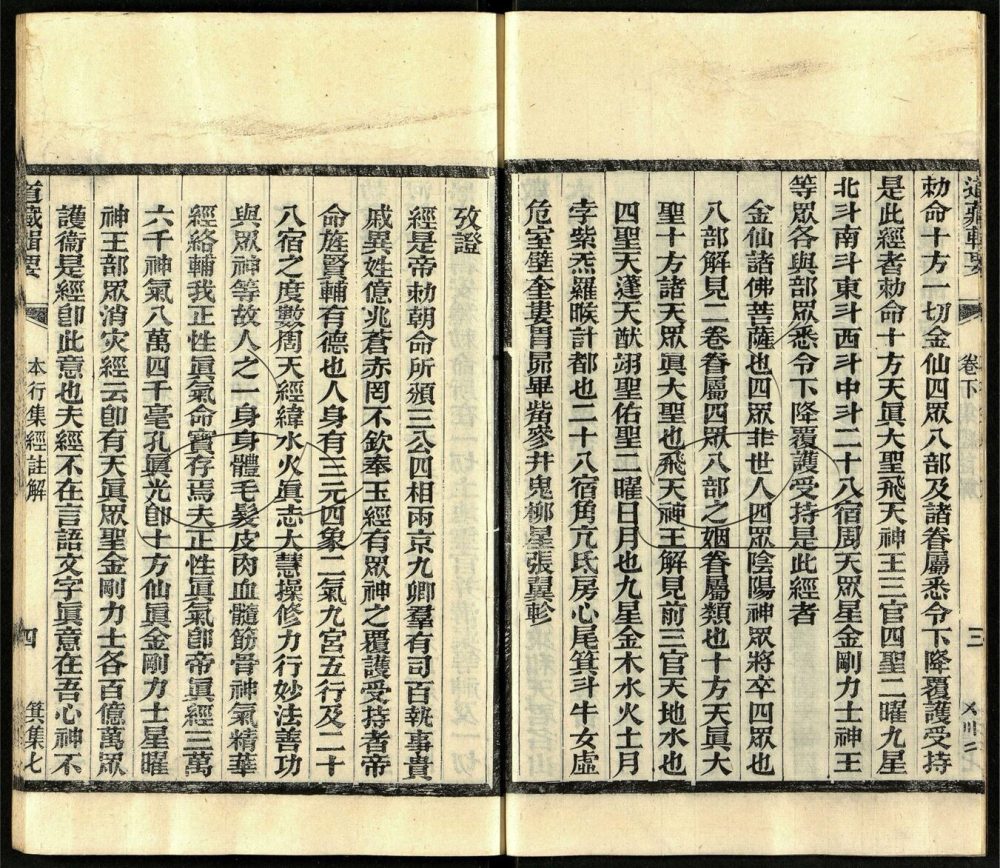 道藏輯要
卷下
三
勅命十方一切金仙四眾八部及諸眷屬悉令下降覆護受持
是此經者勅命十方天眞大聖飛天神王三官四聖二曜九星
北斗南斗東斗西斗中斗二十八宿周天眾星金剛力士神王
等眾各與部眾悉令下降覆護受持是此經者
金仙諸佛菩薩也四眾非世人四眾陰陽神眾將卒四眾也
八部解見二卷眷屬四眾八部之姻眷屬類也十方天眞大
聖十方諸天眾眞大聖也飛天神王解見前三官天地水也
四聖天蓬天猷翊聖佑聖二曜日月也九星金木水火土月
孛紫炁羅㬋計都也二十八宿角亢氐房心尾箕斗牛女虛
危室壁奎婁胃昴畢觜參井鬼柳星張翼軫
攷證
經是帝勅朝命所頒三公四相兩京九卿羣有司百執事貴
戚異姓億兆蒼赤罔不欽奉玉經有眾神之覆護受持者帝
命旌賢輔有德也人身有三元四象二氣九宮五行及二十
八宿之度數周天經緯水火眞志大慧操修力行妙法善功
與眾神等故人之一身身體毛髮皮肉血髓筋骨神氣精華
經絡輔我正性眞氣命寶存焉夫正性眞氣卽帝眞經三萬
六千神氣八萬四千毫孔眞光卽十方仙眞金剛力士星曜
神王部眾消灾經云卽有天眞眾聖金剛力士各百億萬眾
護衞是經卽此意也夫經不在言語文字眞意在吾心神不
道藏輯要
本行集經註解
四
箕集七